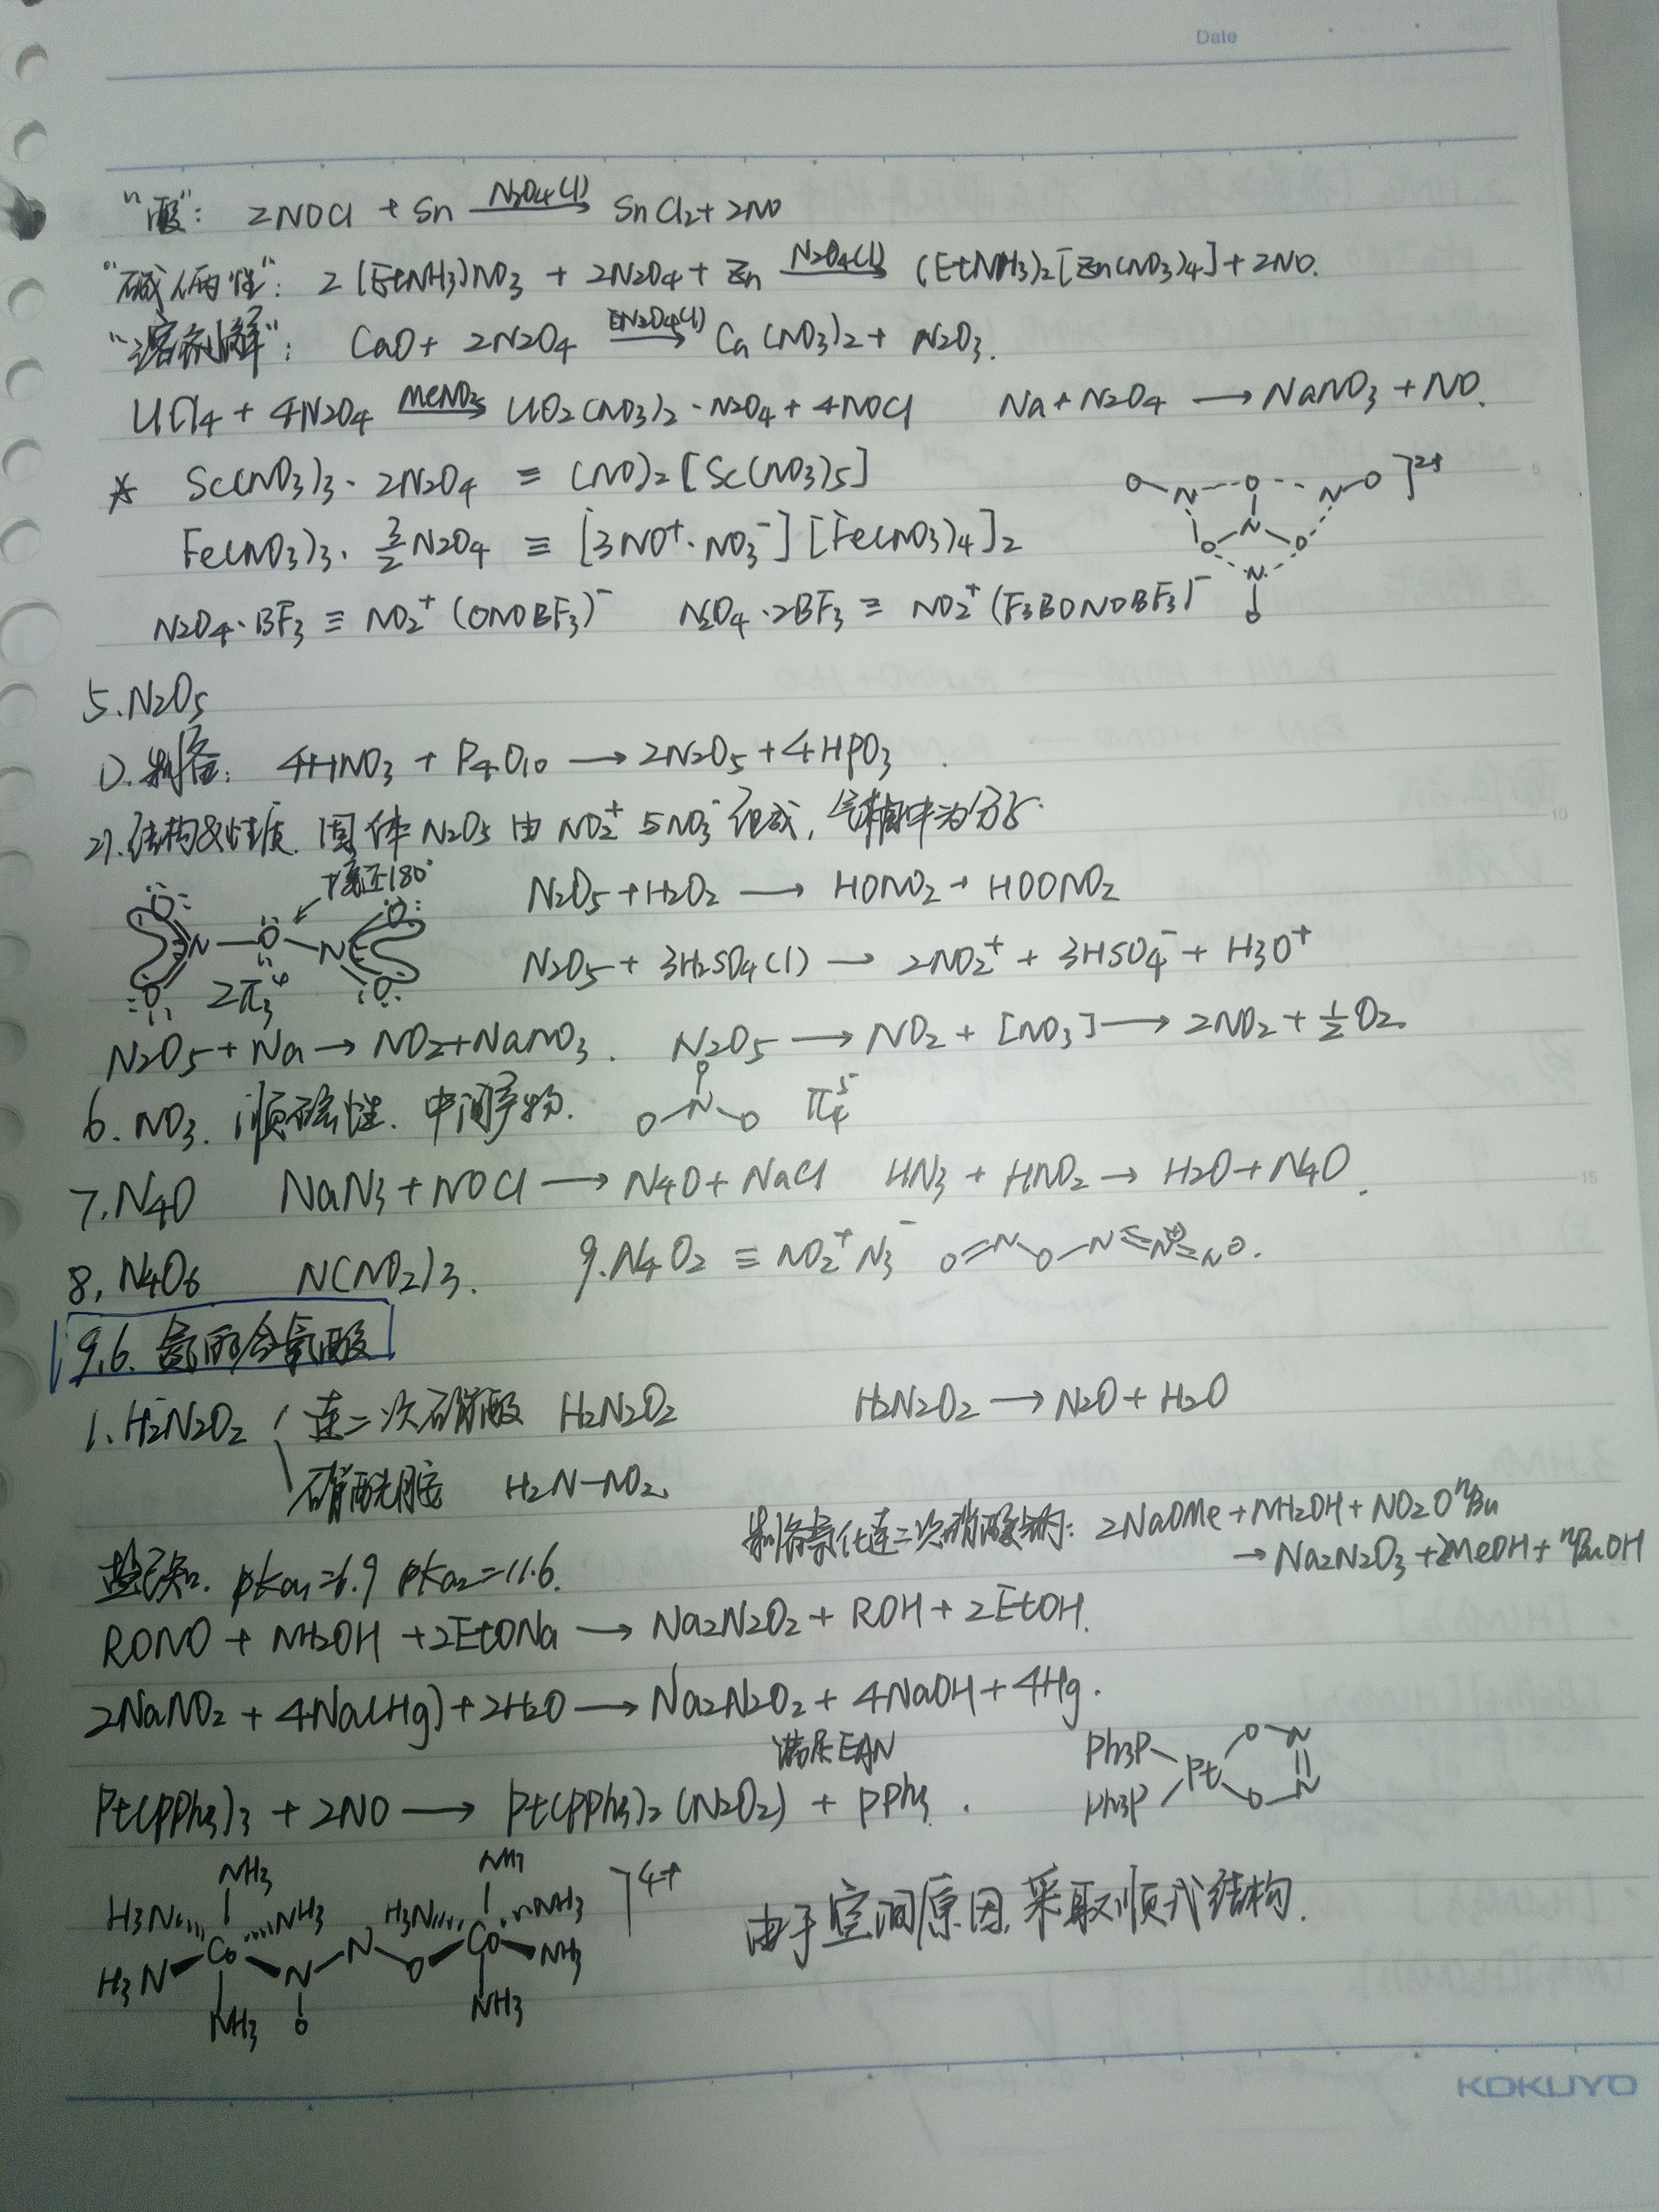 Date
"酸": 2NOCl + Sn —N2O4(l)→ SnCl2 + 2NO
"碱/两性": 2(EtNH3)NO3 + 2N2O4 + Zn —N2O4(l)→ (EtNH3)2[Zn(NO3)4] + 2NO.
"溶剂解": CaO + 2N2O4 —N2O4(l)→ Ca(NO3)2 + N2O3.
UCl4 + 4N2O4 —MeNO2→ UO2(NO3)2·N2O4 + 4NOCl Na + N2O4 → NaNO3 + NO.
* Sc(NO3)3·2N2O4 ≡ (NO)2[Sc(NO3)5]
O N O N O ]2+
Fe(NO3)3·3/2N2O4 ≡ [3NO+·NO3-][Fe(NO3)4]2
N O O N O
N2O4·BF3 ≡ NO2+(ONOBF3)- N2O4·2BF3 ≡ NO2+(F3BONOBF3)-
5. N2O5
1). 制备: 4HNO3 + P4O10 → 2N2O5 + 4HPO3
2). 结构&性质. 固体N2O5由NO2+与NO3-组成, 气相中为分子.
接近180°
N2O5 + H2O2 → HONO2 + HOONO2
O N O N O O O
N2O5 + 3H2SO4(l) → 2NO2+ + 3HSO4- + H3O+
2π3^4
N2O5 + Na → NO2 + NaNO3. N2O5 → NO2 + [NO3] → 2NO2 + 1/2O2
6. NO3. 顺磁性. 中间产物. O N O O π4^5
7. N4O NaN3 + NOCl → N4O + NaCl HN3 + HNO2 → H2O + N4O.
8. N4O6 N(NO2)3. 9. N4O2 ≡ NO2+N3- O=N O–N=N⊕=N⊖.
9.6. 氮的含氧酸
1. H2N2O2 连二次硝酸 H2N2O2 H2N2O2 → N2O + H2O
硝酰胺 H2N–NO2
制备氧化连二次硝酸钠: 2NaOMe + NH2OH + NO2OnBu
→ Na2N2O3 + 2MeOH + nBuOH
盐已知. pKa1=6.9 pKa2=11.6.
RONO + NH2OH + 2EtONa → Na2N2O2 + ROH + 2EtOH.
2NaNO2 + 4Na(Hg) + 2H2O → Na2N2O2 + 4NaOH + 4Hg.
满足EAN
Pt(PPh3)3 + 2NO → Pt(PPh3)2(N2O2) + PPh3.
Ph3P Ph3P Pt O N N O
NH3 H3N NH3 Co H3N NH3 N O N O Co H3N NH3 NH3 NH3 NH3 ]4+
由于空间原因, 采取顺式结构.
KOKUYO